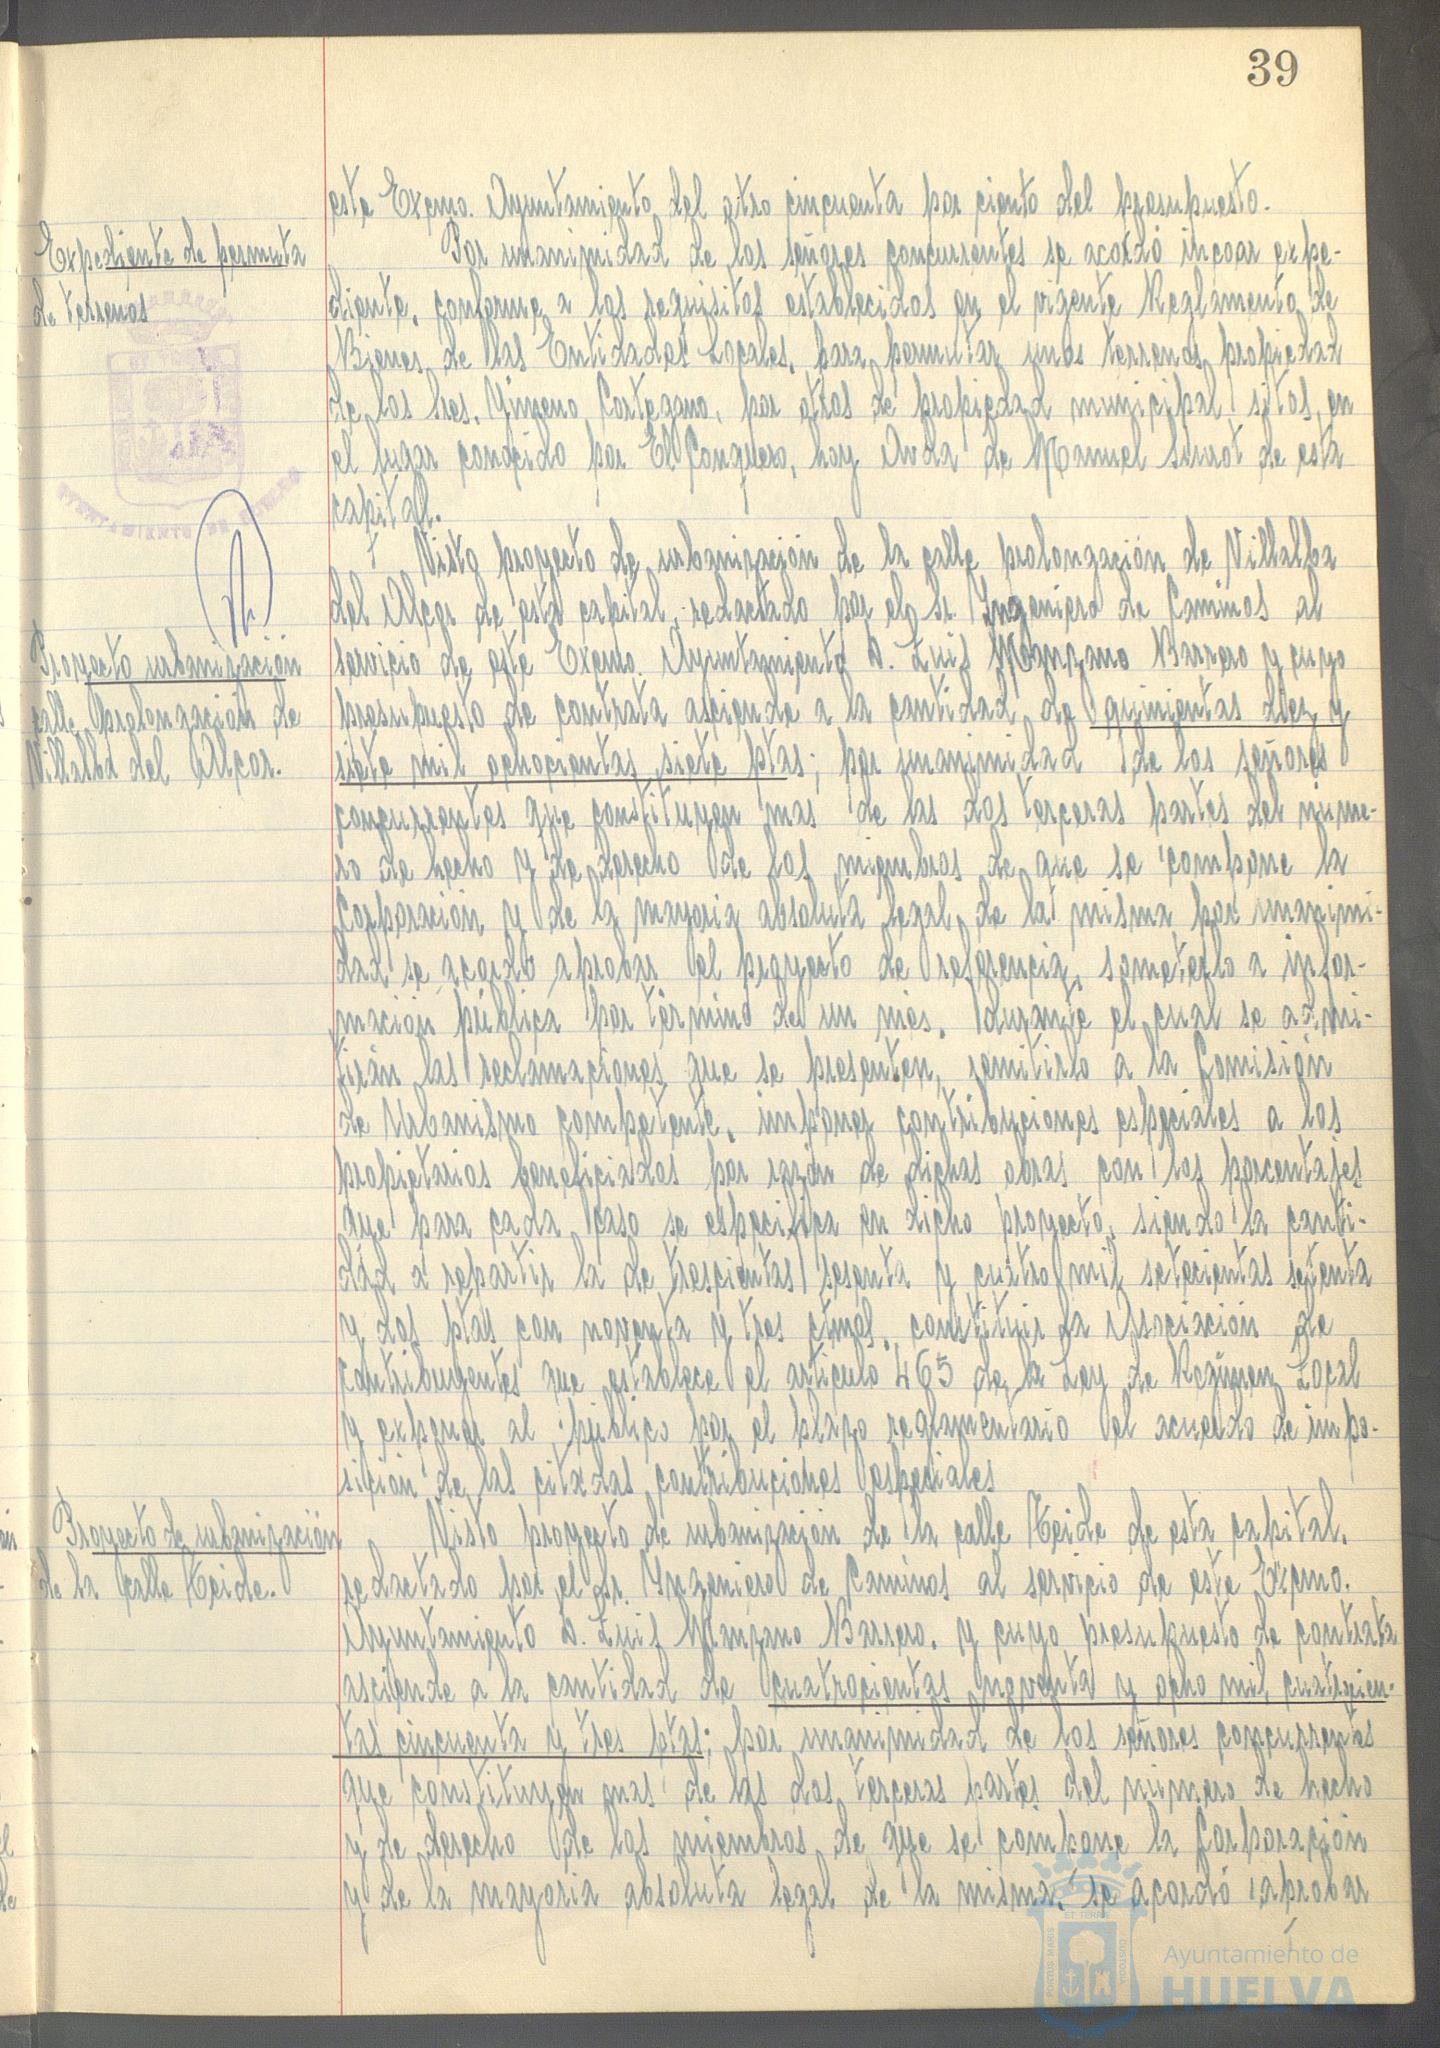 39
este Excmo. Ayuntamiento del otro cincuenta por ciento del presupuesto.
Expediente de permuta
de terrenos
Por unanimidad de los señores concurrentes se acordó incoar expe-
diente, conforme a los requisitos establecidos en el vigente Reglamento de
Bienes de las Entidades Locales, para permutar unos terrenos propiedad
de los Sres. Ximeno Cortegano, por otros de propiedad municipal sitos en
el lugar conocido por El Conquero, hoy Avda de Manuel Siurot de esta
capital.
Proyecto urbanización
calle prolongación de
Villalba del Alcor.
Visto proyecto de urbanización de la calle prolongación de Villalba
del Alcor de esta capital, redactado por el Sr. Ingeniero de Caminos al
servicio de este Excmo. Ayuntamiento D. Luis Manzano Barrero y cuyo
presupuesto de contrata asciende a la cantidad de quinientas diez y
siete mil ochocientas siete ptas; por unanimidad de los señores
concurrentes que constituyen mas de las dos terceras partes del núme-
ro de hecho y de derecho de los miembros de que se compone la
Corporación y de la mayoria absoluta legal de la misma por unanimi-
dad se acordó aprobar el proyecto de referencia, someterlo a infor-
mación pública por término de un mes, durante el cual se admi-
tirán las reclamaciones que se presenten, remitirlo a la Comisión
de Urbanismo competente, imponer contribuciones especiales a los
propietarios beneficiados por razón de dichas obras con los porcentajes
que para cada caso se especifica en dicho proyecto, siendo la canti-
dad a repartir la de trescientas sesenta y cuatro mil setecientas setenta
y dos ptas con noventa y tres ctmos, constituir la Asociación de
Contribuyentes que establece el articulo 465 de la Ley de Régimen Local
y exponer al público por el plazo reglamentario el acuerdo de impo-
sición de las citadas contribuciones especiales
Proyecto de urbanización
de la calle Teide.
Visto proyecto de urbanización de la calle Teide de esta capital,
redactado por el Sr. Ingeniero de Caminos al servicio de este Excmo.
Ayuntamiento D. Luis Manzano Barrero, y cuyo presupuesto de contrata
asciende a la cantidad de cuatrocientas noventa y ocho mil cuatrocien-
tas cincuenta y tres ptas; por unanimidad de los señores concurrentes
que constituyen mas de las dos terceras partes del número de hecho
y de derecho de los miembros de que se compone la Corporación
y de la mayoria absoluta legal de la misma, se acordó aprobar
PORTUS MARIS
ET TERRAE
CUSTODIA
Ayuntamiento de
HUELVA